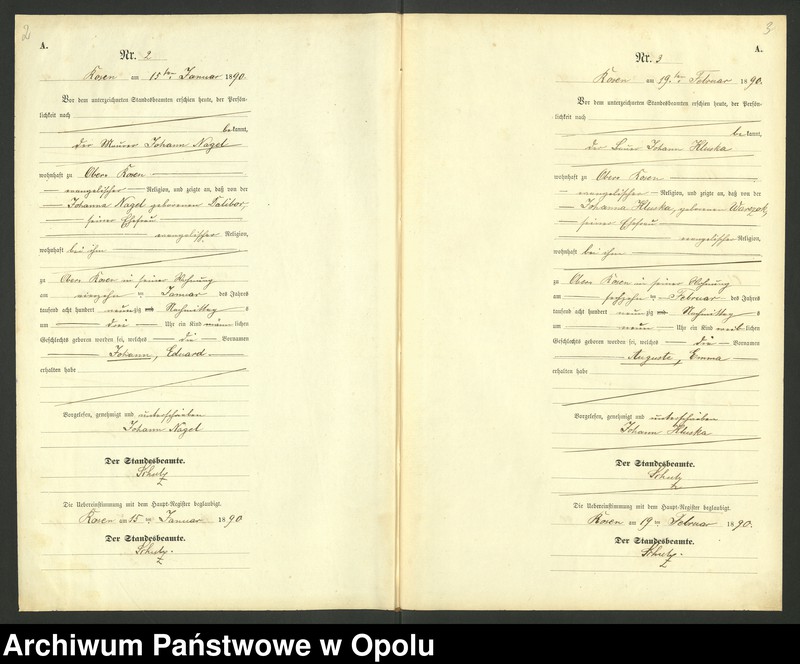 2
A.
Nr. 2
Rosen am 15ten Januar 1890.
Vor dem unterzeichneten Standesbeamten erschien heute, der Persön-
lichkeit nach
bekannt,
der Maurer Johann Nagel
wohnhaft zu Ober Rosen
evangelischer Religion, und zeigte an, daß von der
Johanna Nagel geborenen Talibor,
seiner Ehefrau
evangelischer Religion,
wohnhaft bei ihm
zu Ober Rosen in seiner Wohnung
am vierzehn ten Januar des Jahres
tausend acht hundert neunzig Nachmittag s
um drei Uhr ein Kind männlichen
Geschlechts geboren worden sei, welches die Vornamen
Johann, Eduard
erhalten habe
Vorgelesen, genehmigt und unterschrieben
Johann Nagel
Der Standesbeamte.
Schulz
Die Uebereinstimmung mit dem Haupt-Register beglaubigt.
Rosen am 15 ten Januar 1890
Der Standesbeamte.
Schulz.
3
A.
Nr. 3
Rosen am 19.ten Februar 1890.
Vor dem unterzeichneten Standesbeamten erschien heute, der Persön-
lichkeit nach
bekannt,
der Johann Kluska
wohnhaft zu Ober Rosen
evangelischer Religion, und zeigte an, daß von der
Johanna Kluska, geborenen
seiner Ehefrau
evangelischer Religion,
wohnhaft bei ihm
zu Ober Rosen in seiner Wohnung
am sechzehn ten Februar des Jahres
tausend acht hundert neunzig Nachmittag s
um neun Uhr ein Kind weiblichen
Geschlechts geboren worden sei, welches die Vornamen
Auguste, Emma
erhalten habe
Vorgelesen, genehmigt und unterschrieben
Johann Kluska
Der Standesbeamte.
Schulz
Die Uebereinstimmung mit dem Haupt-Register beglaubigt.
Rosen am 19 ten Februar 1890.
Der Standesbeamte.
Schulz.
Archiwum Państwowe w Opolu